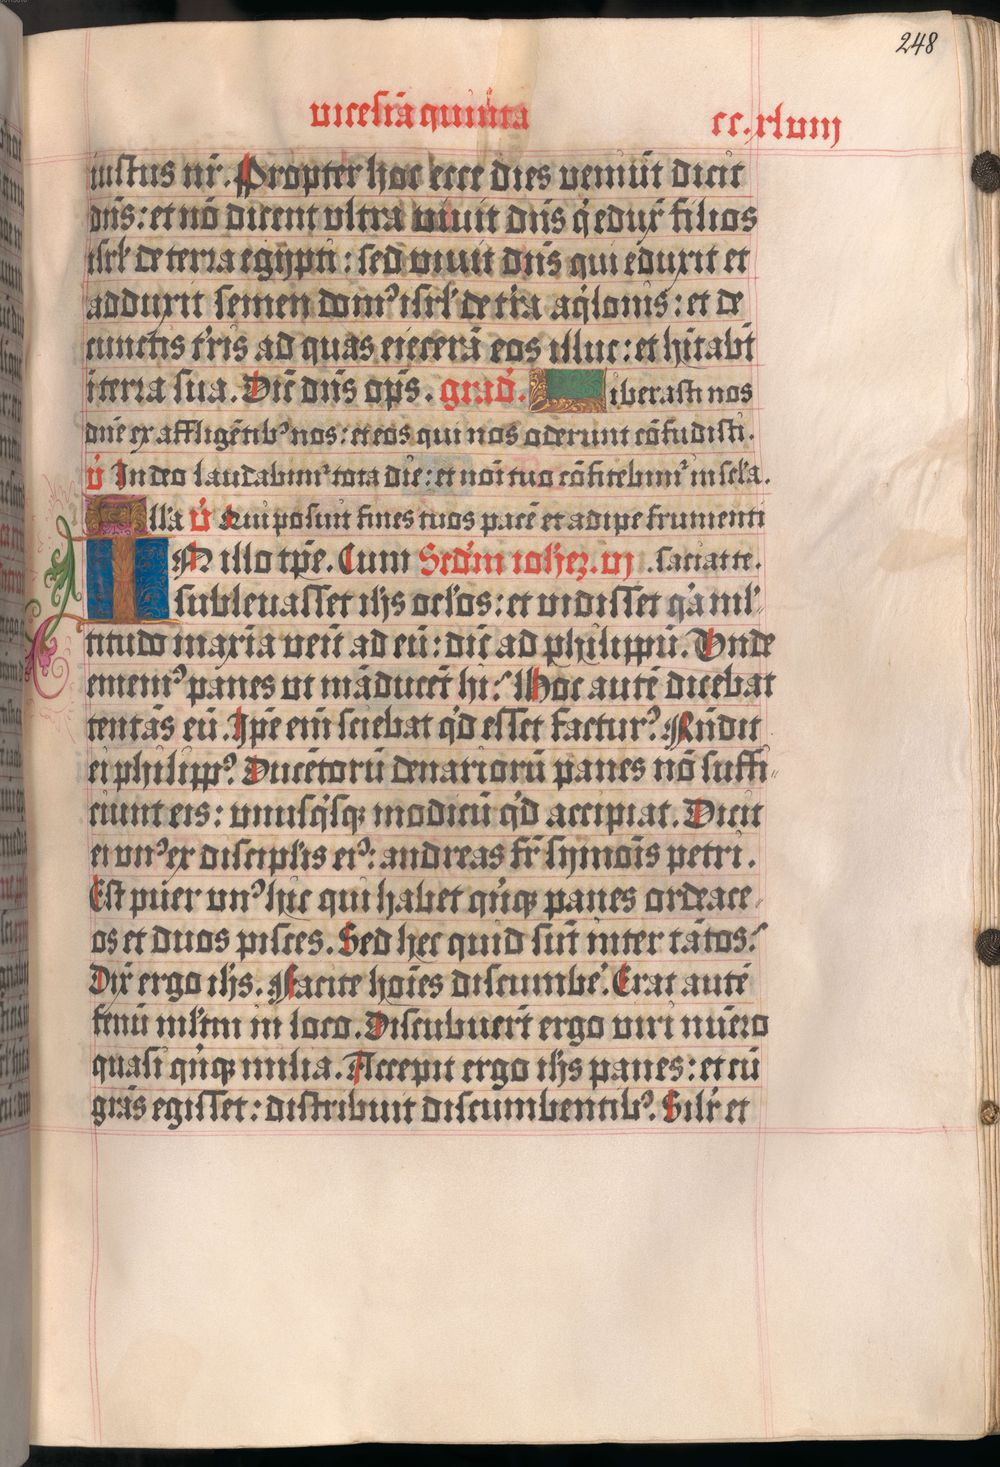 248
vicesīa quīnta
cc.xlviij
iustus nr̄. Propter hoc ecce dies veniūt dicit
dn̄s: et nō dicent vltra viuit dn̄s q̇ edux̄ filios
isrl̄ de terra egypti: sed viuit dn̄s qui eduxit et
adduxit semen domꝰ isrl̄ de tr̄a aq̇lonis: et de
cunctis tr̄is ad quas eiecerā eos illuc: et hītabt̄
ī terra sua. Dic̄ dn̄s op̄s. grad̄. iberasti nos
dn̄e ex affligētibꝰ nos: et eos qui nos oderunt cōfudisti.
v̄ In deo laudabimꝰ tota die: et noī tuo cōfitebimꝰ in scl̄a.
Alla v̄ Qui posuit fines tuos pacē et adipe frumenti
IN illo tp̄e. Cum Scd̄m iohez. vj .saciat te.
subleuasset ih̄s ocl̄os: et vidisset q̇a ml̄
titudo maxīa venit̄ ad eū: dic̄ ad philippū. Vnde
ememꝰ panes vt māducēt hi? Hoc autē dicebat
tentās eū. Ip̄e em̄ sciebat q̇d esset facturꝰ. Rn̄dit
ei philippꝰ. Ducētorū denariorū panes nō suffi
ciunt eis: vnusq̇sqꝫ modicū q̇d accipiat. Dicit
ei vnꝰ ex discipl̄is eiꝰ: andreas fr̄ symōis petri.
Est puer vnꝰ hic qui habet qn̄qꝫ panes ordeace
os et duos pisces. Sed hec quid sūt inter tātos?
Dix̄ ergo ih̄s. Facite hoīes discumbē. Erat autē
fenū ml̄tm in loco. Discubuerūt ergo viri nūero
quasi qn̄qꝫ milia. Accepit ergo ih̄s panes: et cū
grās egisset: distribuit discumbentibꝰ. Silr̄ et